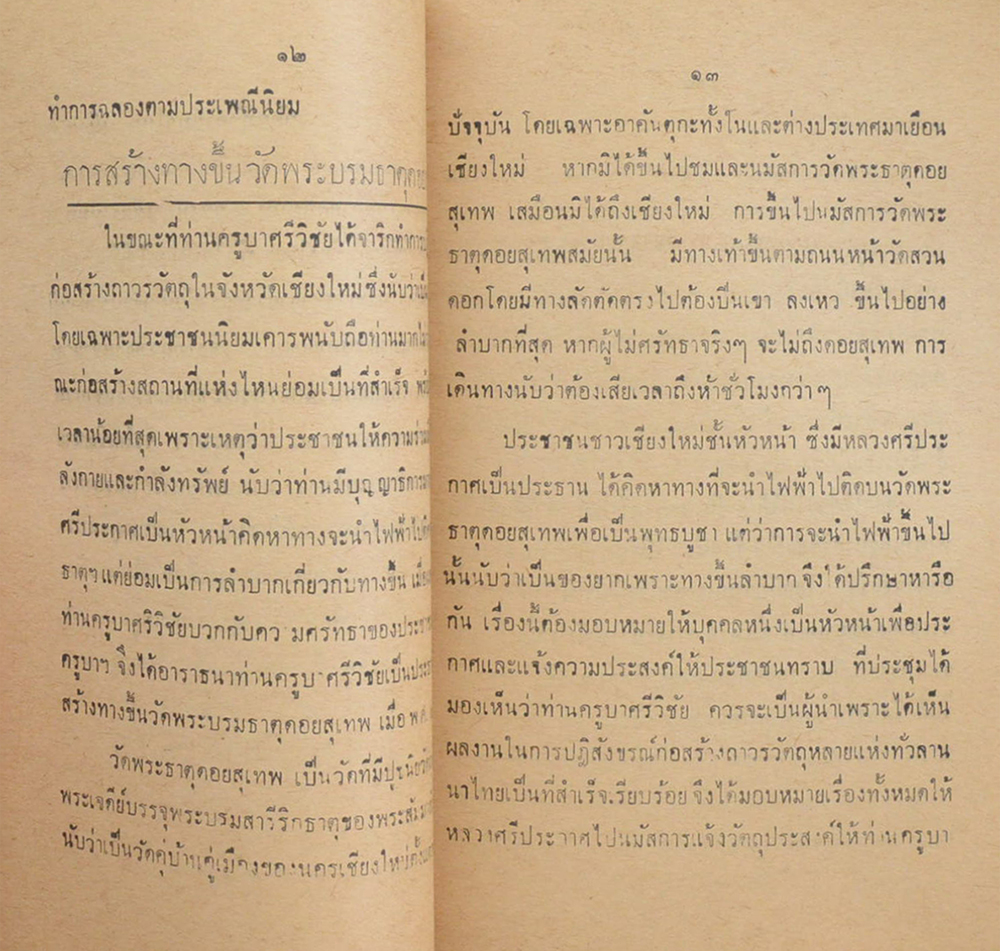 ๑๒
ทำการฉลองตามประเพณีนิยม
การสร้างทางขึ้นวัดพระบรมธาตุดอย
ในขณะที่ท่านครูบาศรีวิชัยได้จาริกทำการ
ก่อสร้างถาวรวัตถุในจังหวัดเชียงใหม่ซึ่งนับว่า
โดยเฉพาะประชาชนนิยมเคารพนับถือท่านมาก
ณะก่อสร้างสถานที่แห่งไหนย่อมเป็นที่สำเร็จ
เวลาน้อยที่สุดเพราะเหตุว่าประชาชนให้ความ
ลังกายและกำลังทรัพย์ นับว่าท่านมีบุญ ญาธิการ
ศรีประกาศเป็นหัวหน้าคิดหาทางจะนำไฟฟ้าไป
ธาตุฯ แต่ย่อมเป็นการลำบากเกี่ยวกับทางขึ้น
ท่านครูบาศริวิชัยบวกกับคว มศรัทธาของประชา
ครูบาฯ จึ่งได้อาราธนาท่านครูบาศรีวิชัยเป็น
สร้างทางขึ้นวัดพระบรมธาตุดอยสุเทพ เมื่อ
วัดพระธาตุดอยสุเทพ เป็นวัดที่มี
พระเจดีย์บรรจุพระบรมสารีริกธาตุของ
นับว่าเป็นวัดคู่บ้านคู่เมืองของนครเชียงใหม่
๑๓
ปัจจุบัน โดยเฉพาะอาคันตุกะทั้งในและต่างประเทศมาเยือน
เชียงใหม่ หากมิได้ขึ้นไปชมและนมัสการวัดพระธาตุดอย
สุเทพ เสมือนมิได้ถึงเชียงใหม่ การขึ้นไปนมัสการวัดพระ
ธาตุดอยสุเทพสมัยนั้น มีทางเท้าขึ้นตามถนนหน้าวัดสวน
ดอกโดยมีทางลัดตัดตรงไปต้องปีนเขา ลงเหว ขึ้นไปอย่าง
ลำบากที่สุด หากผู้ไม่ศรัทธาจริงๆ จะไม่ถึงดอยสุเทพ การ
เดินทางนับว่าต้องเสียเวลาถึงห้าชั่วโมงกว่าๆ
ประชาชนชาวเชียงใหม่ชั้นหัวหน้า ซึ่งมีหลวงศรีประ
กาศเป็นประธาน ได้คิดหาทางที่จะนำไฟฟ้าไปติดบนวัดพระ
ธาตุดอยสุเทพเพื่อเป็นพุทธบูชา แต่ว่าการจะนำไฟฟ้าขึ้นไป
นั้นนับว่าเป็นของยากเพราะทางขึ้นลำบาก จึงได้ปรึกษาหารือ
กัน เรื่องนี้ต้องมอบหมายให้บุคคลหนึ่งเป็นหัวหน้าเพื่อประ
กาศและแจ้งความประสงค์ให้ประชาชนทราบ ที่ประชุมได้
มองเห็นว่าท่านครูบาศรีวิชัย ควรจะเป็นผู้นำเพราะได้เห็น
ผลงานในการปฏิสังขรณ์ก่อสร้างถาวรวัตถุหลายแห่งทั่วลาน
นาไทยเป็นที่สำเร็จเรียบร้อย จึงได้มอบหมายเรื่องทั้งหมดให้
หลวงศรีประกาศไปนมัสการแจ้งวัตถุประสงค์ให้ท่านครูบา